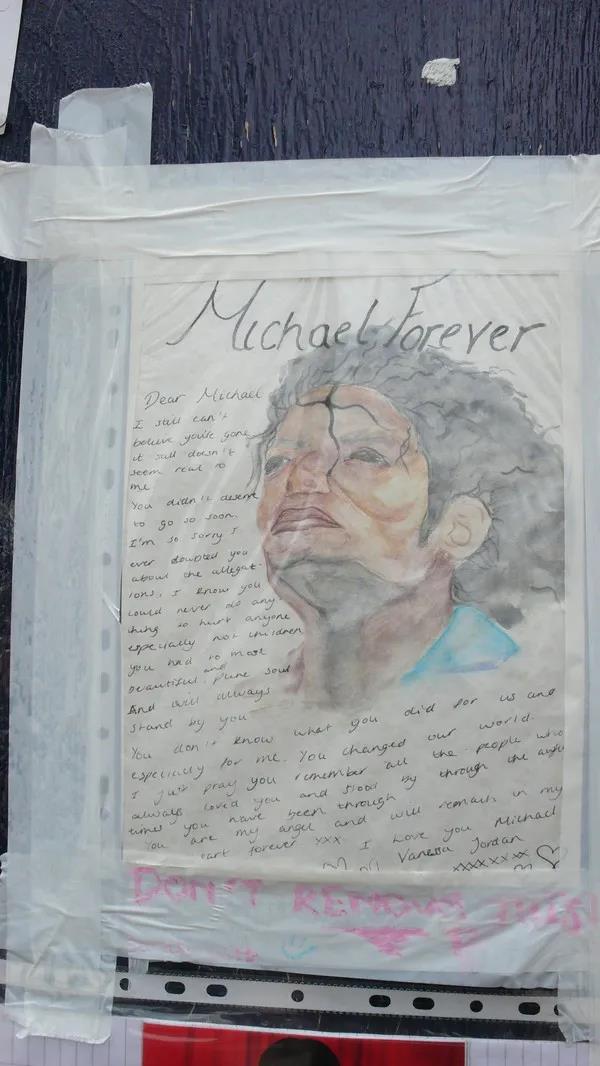 Michael Forever
Dear Michael
I still can't
believe you're gone
it still doesn't
seem real to
me
You didn't deserve
to go so soon.
I'm so sorry I
ever doubted you
about the allegat-
ions, I know you
could never do any
thing to hurt anyone
especially not children
you had to most
beautiful and pure soul
And will always
stand by you
You don't know what you did for us and
especially for me. You changed our world.
I just pray you remember all the people who
always loved you and stood by through the awful
times you have been through
You are my angel and will remain in my
eart forever xxx. I Love you Michael
Vanessa Jordan
xxxxxxxx
DON'T REMOVE THIS!